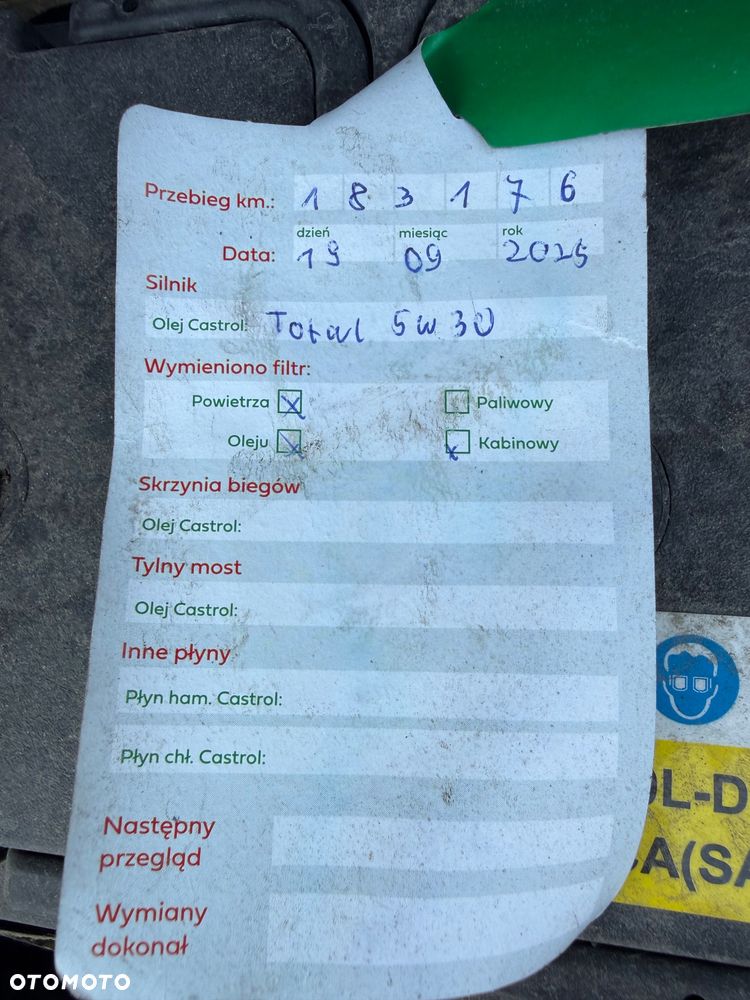 Przebieg km.: 1 8 3 1 7 6
dzień miesiąc rok
Data: 19 09 2025
Silnik
Olej Castrol: Total 5w30
Wymieniono filtr:
Powietrza x Paliwowy
Oleju x x Kabinowy
Skrzynia biegów
Olej Castrol:
Tylny most
Olej Castrol:
Inne płyny
Płyn ham. Castrol:
Płyn chł. Castrol:
Następny
przegląd
Wymiany
dokonał
OL-D
CA(SA
OTOMOTO